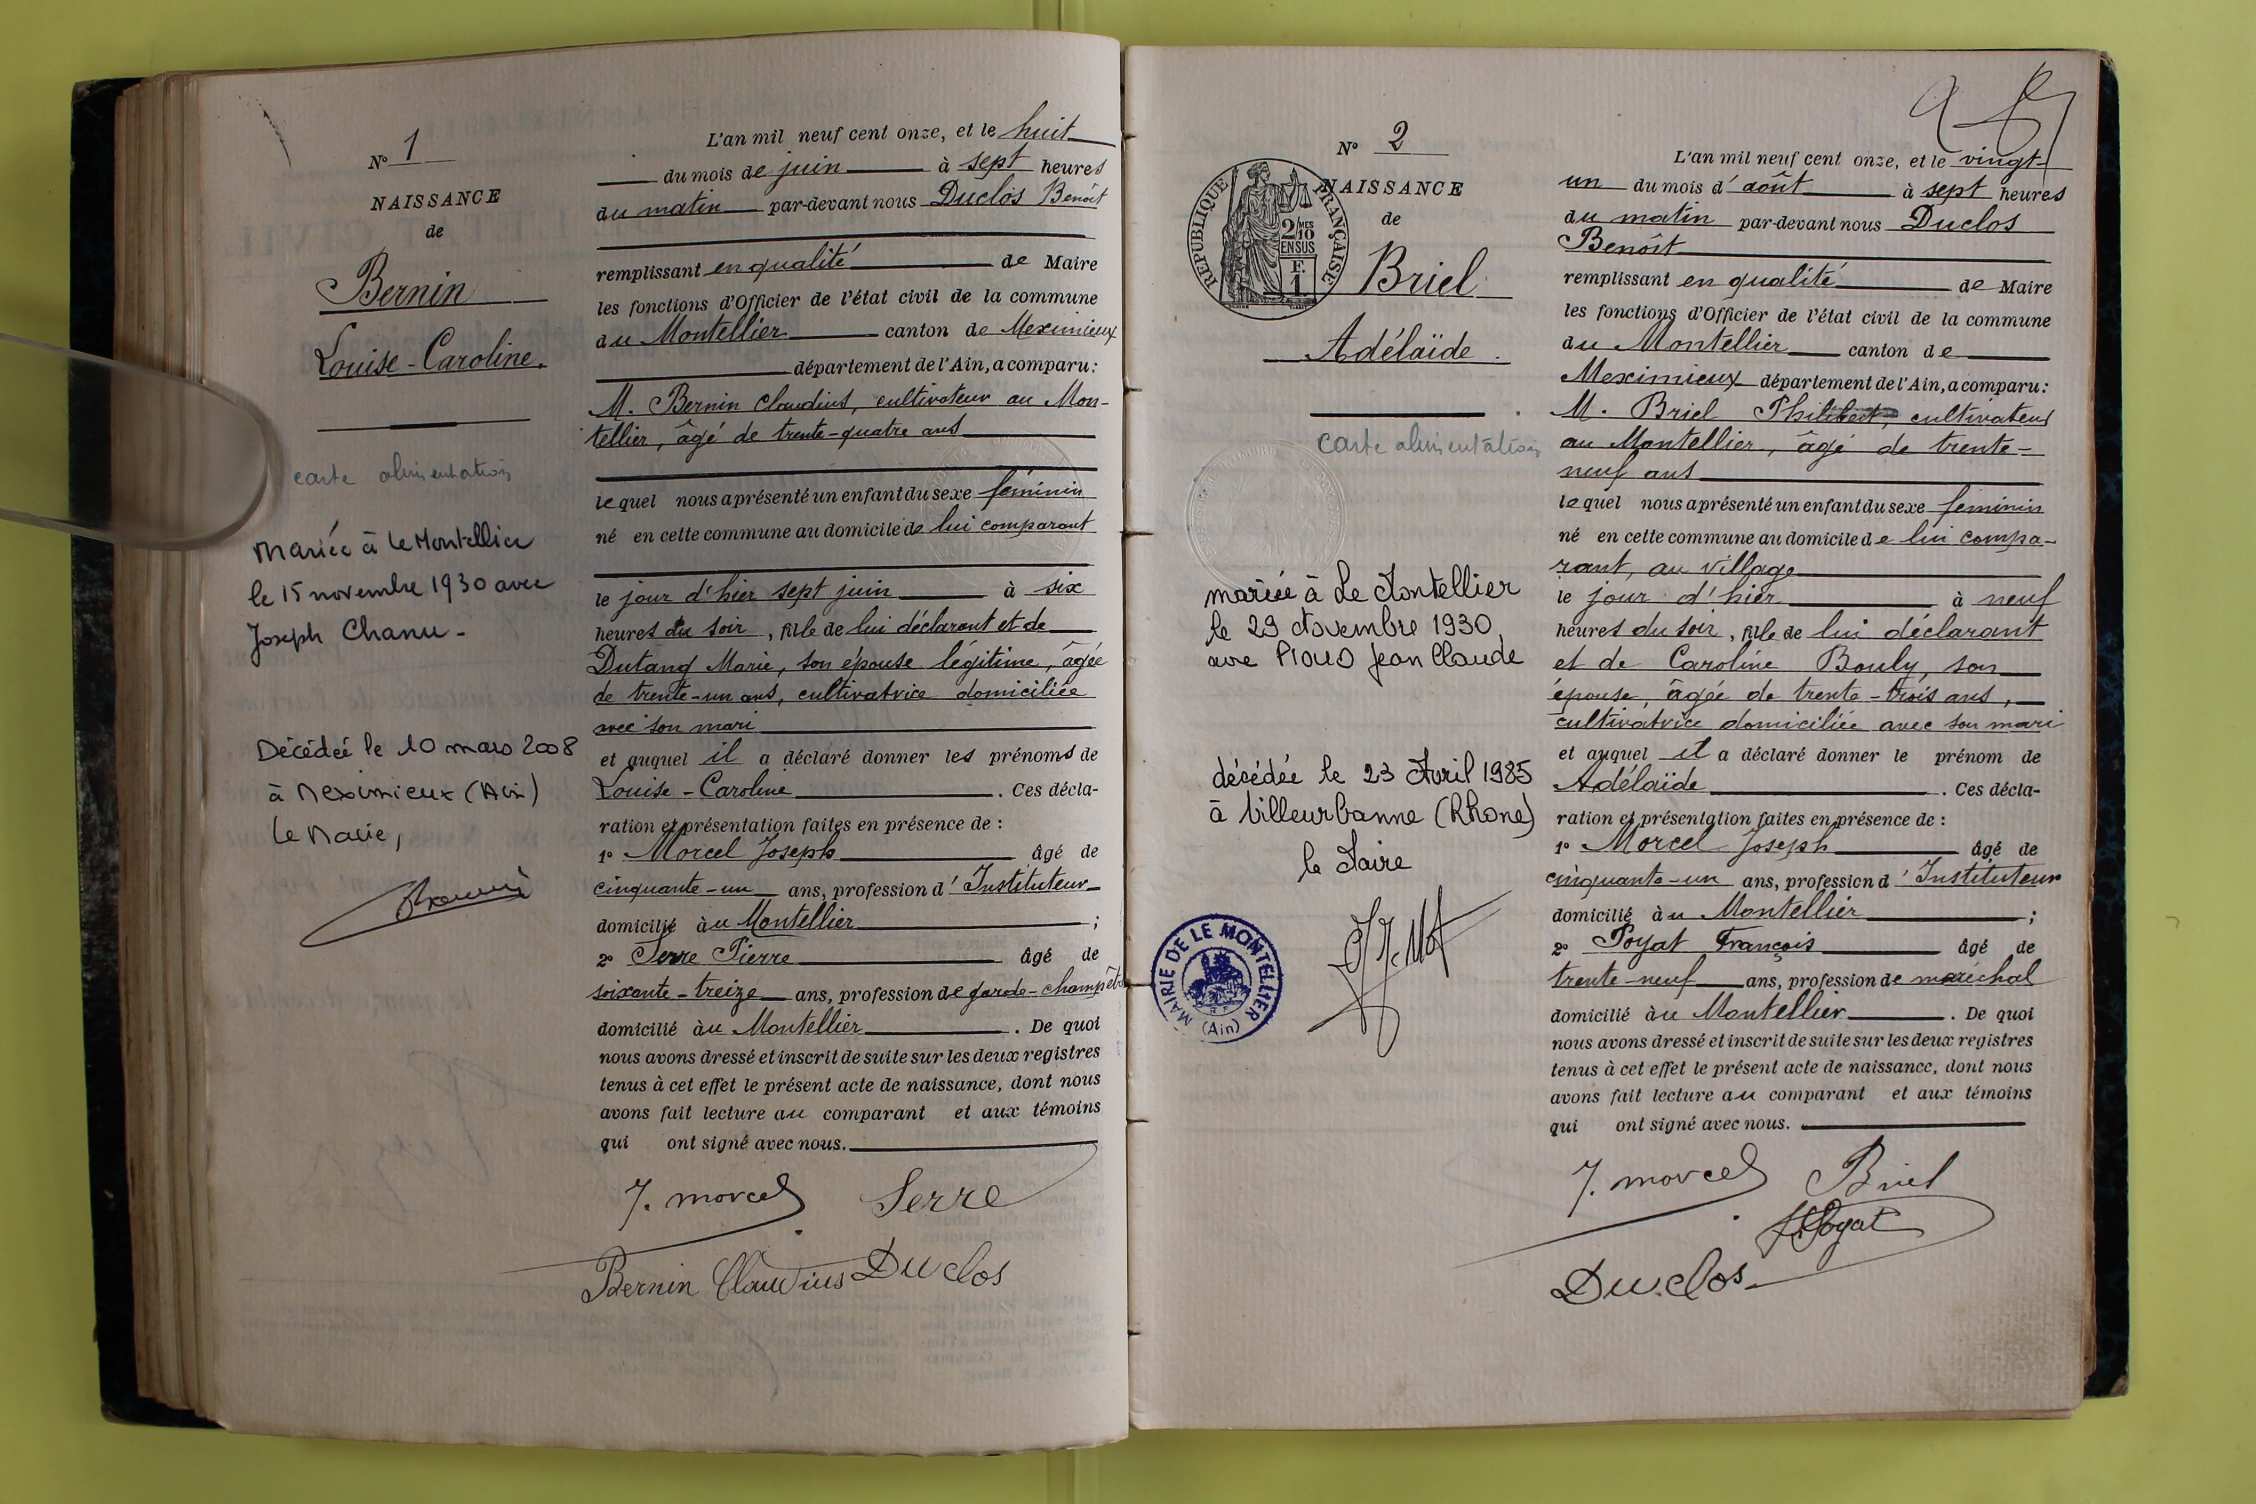 N° 1
NAISSANCE
de
Bernin
Louise-Caroline.
carte alimentation
Mariée à Le Montellier
le 15 novembre 1930 avec
Joseph Chanu -
Décédée le 10 mars 2008
à Meximieux (Ain)
Le Maire,
L'an mil neuf cent onze, et le huit
du mois de juin à sept heures
du matin par-devant nous Duclos Benoît
remplissant en qualité de Maire
les fonctions d'Officier de l'état civil de la commune
du Montellier canton de Meximieux
département de l'Ain, a comparu:
M. Bernin Claudius, cultivateur au Mon-
tellier, âgé de trente-quatre ans
lequel nous a présenté un enfant du sexe féminin
né en cette commune au domicile de lui comparant
le jour d'hier sept juin à six
heures du soir, fille de lui déclarant et de
Dutang Marie, son épouse légitime, âgée
de trente-un ans, cultivatrice domiciliée
avec son mari
et auquel il a déclaré donner les prénoms de
Louise-Caroline. Ces décla-
ration et présentation faites en présence de :
1° Morcel Joseph âgé de
cinquante-un ans, profession d'Instituteur
domicilié au Montellier ;
2° Serre Pierre âgé de
soixante-treize ans, profession de garde-champêtre
domicilié au Montellier. De quoi
nous avons dressé et inscrit de suite sur les deux registres
tenus à cet effet le présent acte de naissance, dont nous
avons fait lecture au comparant et aux témoins
qui ont signé avec nous.
J. Morcel Serre
Bernin Claudius Duclos
N° 2
REPUBLIQUE FRANÇAISE
2/10 MES
EN SUS
F.
1
NAISSANCE
de
Briel
Adélaïde.
carte alimentation
mariée à Le Montellier
le 29 Novembre 1930,
avec Pious Jean Claude
décédée le 23 Avril 1985
à Villeurbanne (Rhone)
le Maire
MAIRIE DE LE MONTELLIER
(Ain)
L'an mil neuf cent onze, et le vingt-
un du mois d'août à sept heures
du matin par-devant nous Duclos
Benoît
remplissant en qualité de Maire
les fonctions d'Officier de l'état civil de la commune
du Montellier canton de
Meximieux département de l'Ain, a comparu:
M. Briel Philibert, cultivateur
au Montellier, âgé de trente-
neuf ans
lequel nous a présenté un enfant du sexe féminin
né en cette commune au domicile de lui compa-
rant, au village
le jour d'hier à neuf
heures du soir, fille de lui déclarant
et de Caroline Bouly, son
épouse, âgée de trente-trois ans,
cultivatrice domiciliée avec son mari
et auquel il a déclaré donner le prénom de
Adélaïde. Ces décla-
ration et présentation faites en présence de :
1° Morcel Joseph âgé de
cinquante-un ans, profession d'Instituteur
domicilié au Montellier ;
2° Poyat François âgé de
trente-neuf ans, profession de maréchal
domicilié au Montellier. De quoi
nous avons dressé et inscrit de suite sur les deux registres
tenus à cet effet le présent acte de naissance, dont nous
avons fait lecture au comparant et aux témoins
qui ont signé avec nous.
J. Morcel Briel
Poyat
Duclos